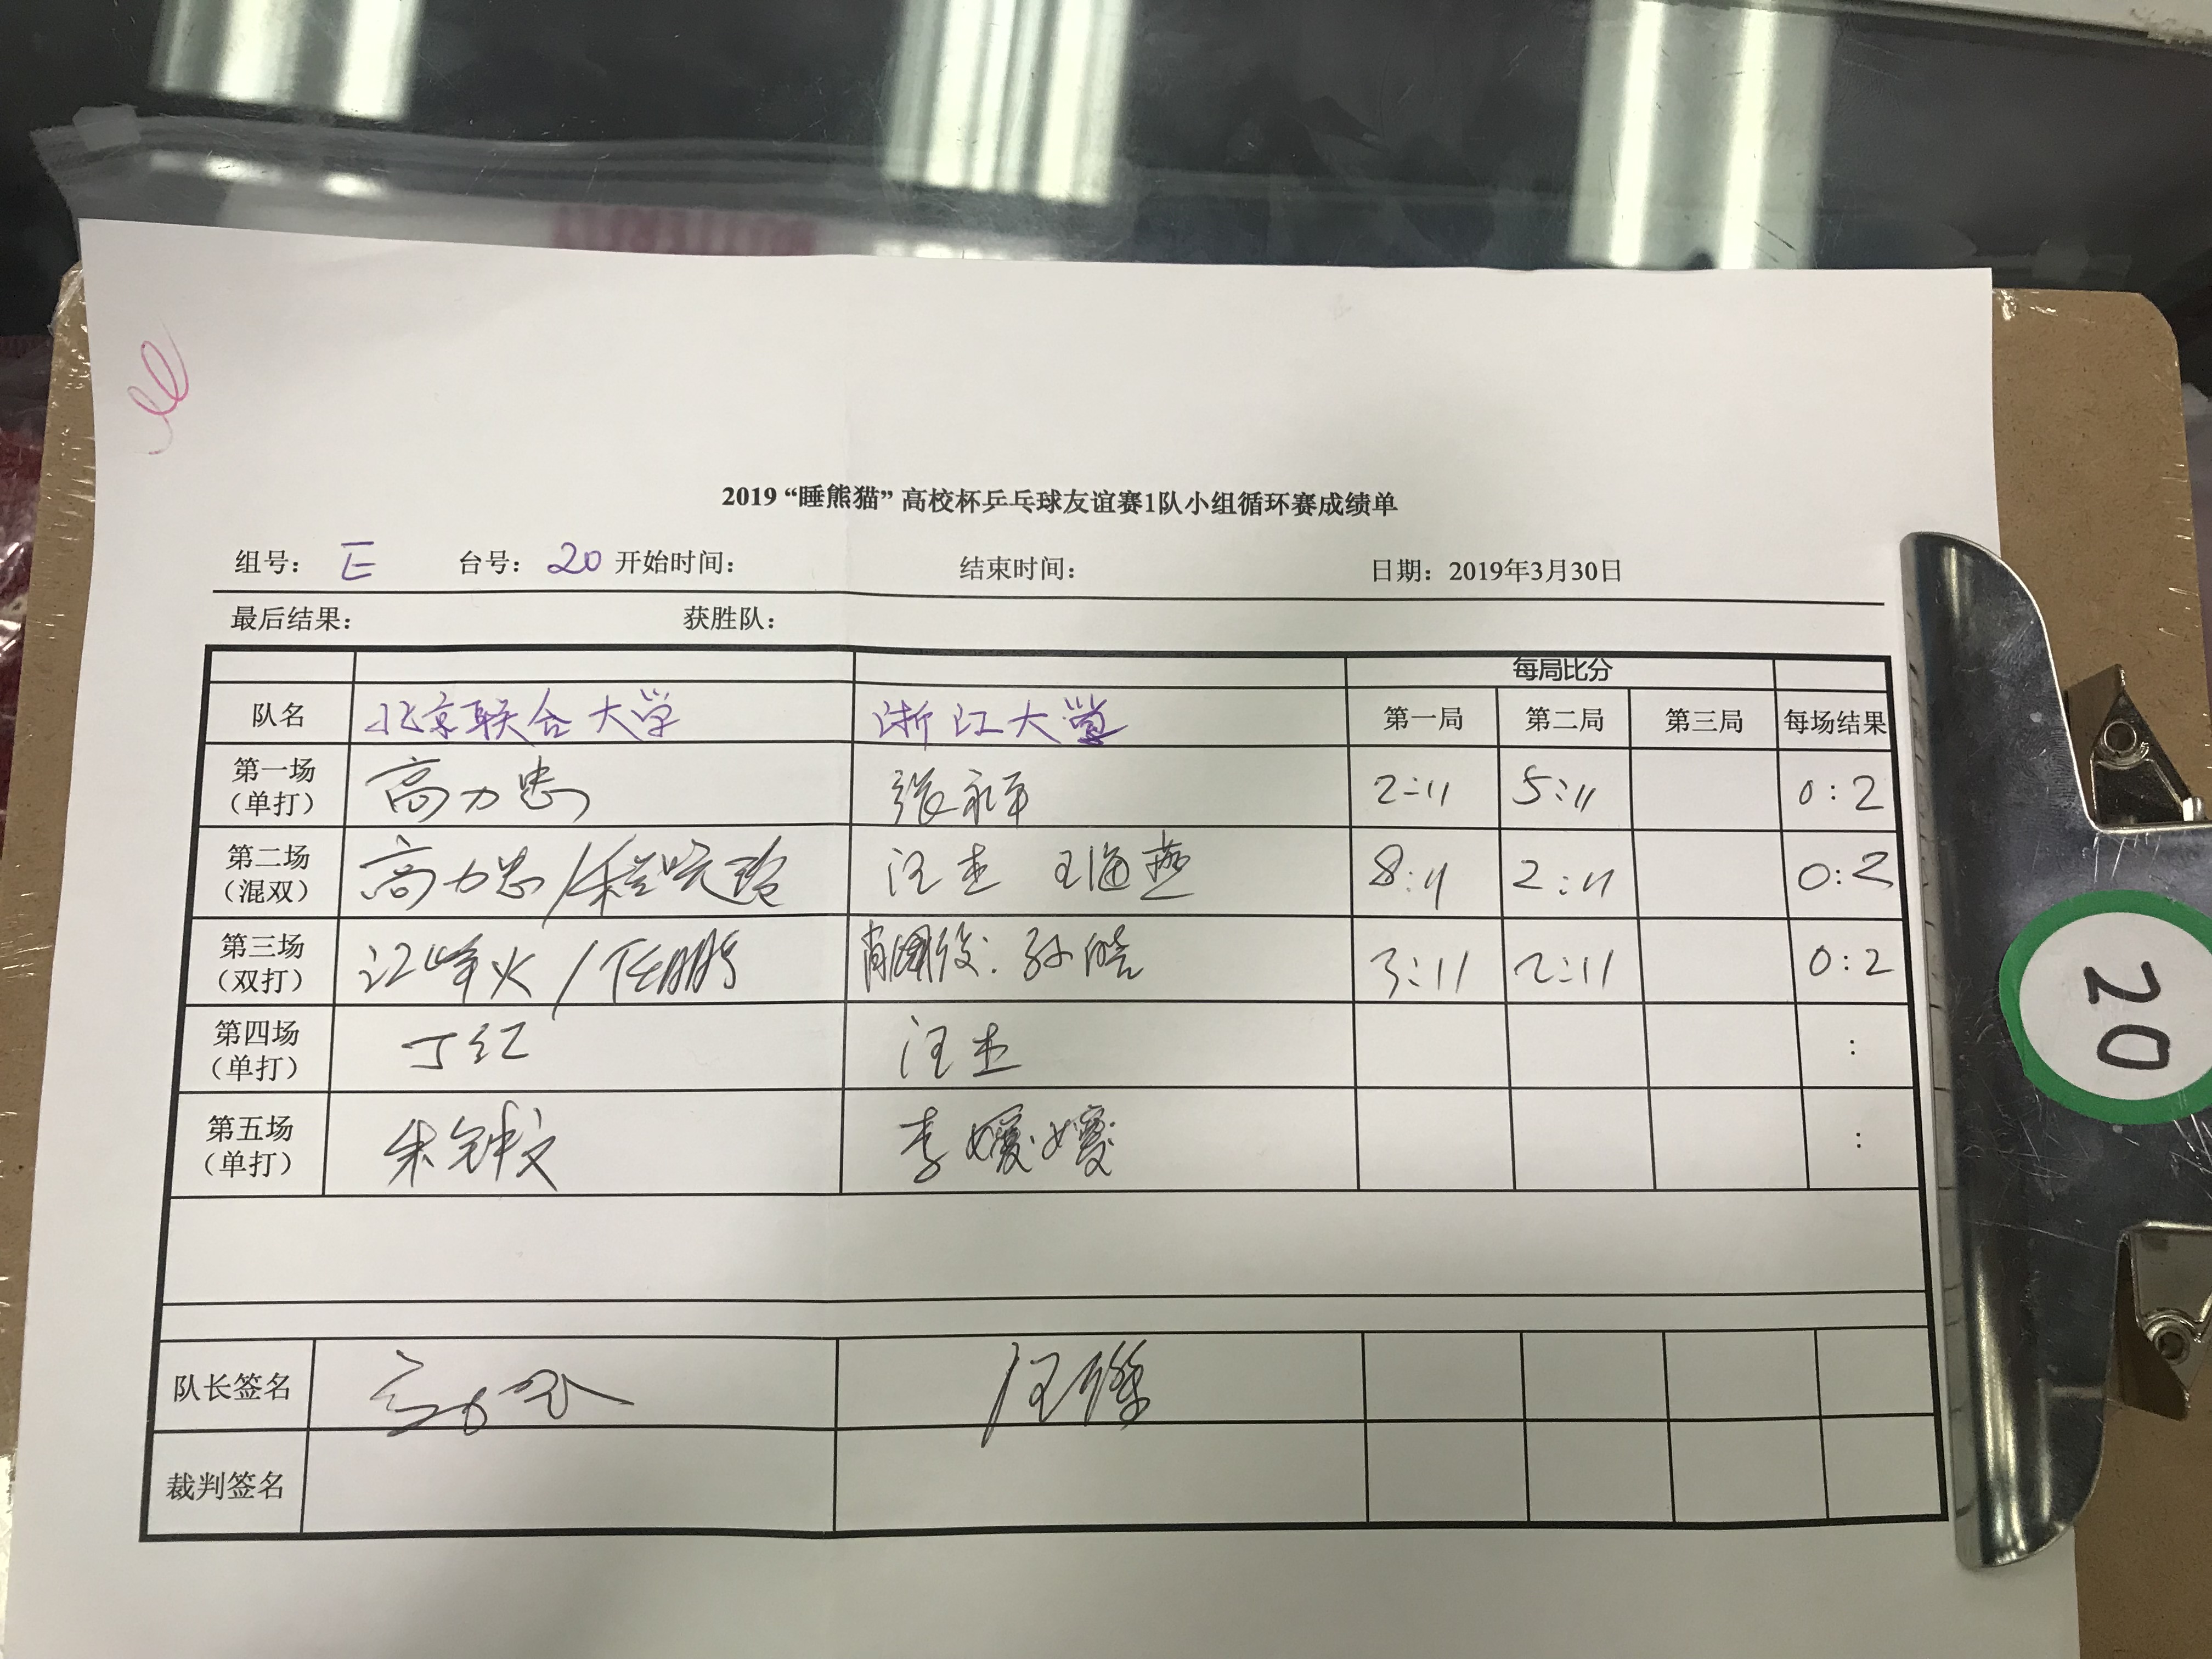 2019 “睡熊猫” 高校杯乒乓球友谊赛1队小组循环赛成绩单
组号： E 台号： 20 开始时间： 结束时间： 日期：2019年3月30日
最后结果： 获胜队：
每局比分
队名 北京联合大学 浙江大学 第一局 第二局 第三局 每场结果
第一场（单打） 高力忠 张永平 2:11 5:11 0:2
第二场（混双） 高力忠/程 汪杰 王海燕 8:11 2:11 0:2
第三场（双打） 江峰火/任鹏 肖 孙皓 3:11 2:11 0:2
第四场（单打） 丁红 汪杰 :
第五场（单打） 朱钟文 李媛媛 :
队长签名 汪傑
裁判签名
20